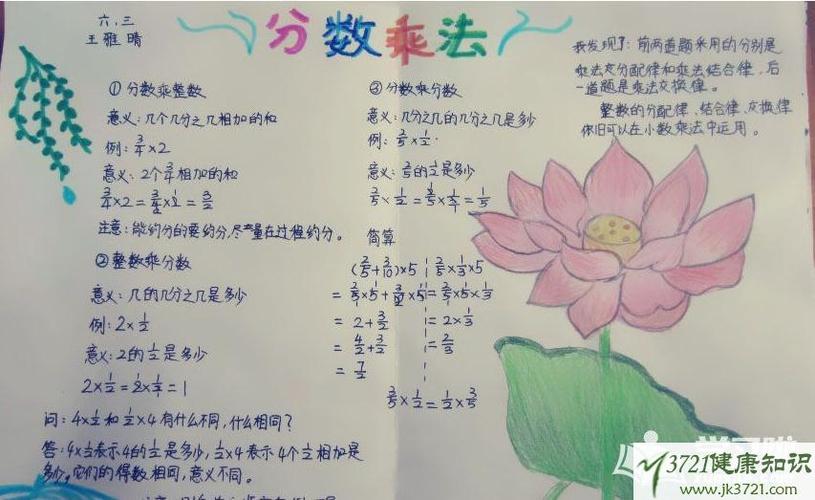 六.三
王雅晴
分数乘法
① 分数乘整数
意义：几个几分之几相加的和
例：3/4×2
意义：2个3/4相加的和
3/4×2=3/4×2/1=3/2
注意：能约分的要约分，尽量在过程约分。
② 整数乘分数
意义：几的几分之几是多少
例：2×1/2
意义：2的1/2是多少
2×1/2=2×1/2=1
问：4×1/2和1/2×4有什么不同，什么相同？
答：4×1/2表示4的1/2是多少，1/2×4表示4个1/2相加是
多少。它们的得数相同，意义不同。
③ 分数乘分数
意义：几分之几的几分之几是多少
例：2/5×1/2.
意义：2/5的1/2是多少
2/5×1/2=
=1/5
简算
(2/5+3/10)×5
=2/5×5+3/10×5
=2+3/2
=4/2+3/2
=7/2
2/5×1/3×5
=2/5×5×1/3
=2×1/3
=2/3
3/5×1/2=1/2×3/5
我发现了：前两道题采用的分别是
乘法分配律和乘法结合律，后
一道题是乘法交换律。
整数的分配律、结合律、交换律
依旧可以在小数乘法中运用。
3721健康知识
www.jk3721.com